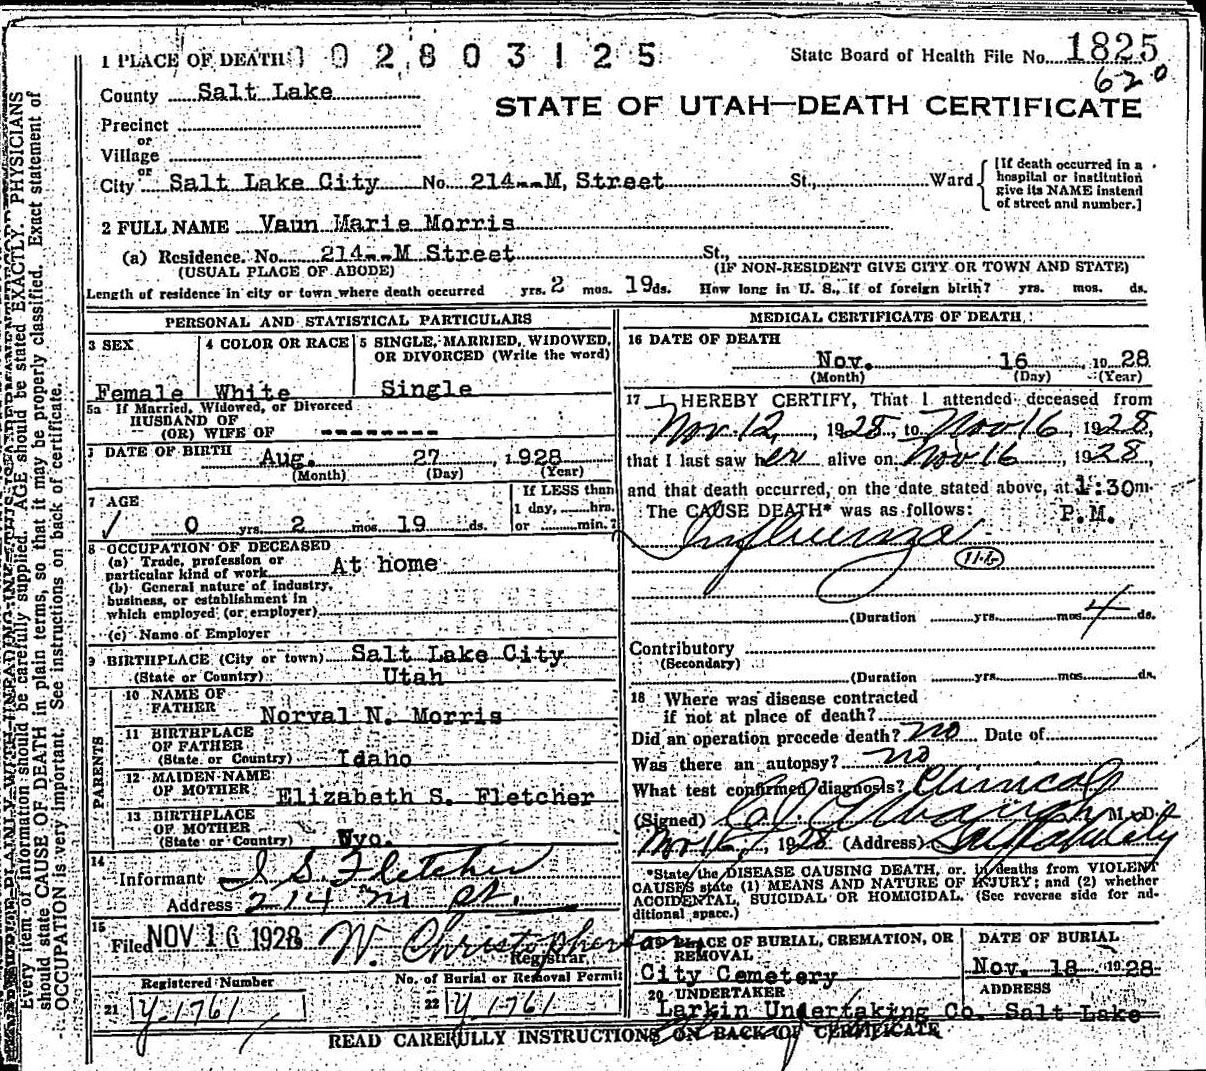 1 PLACE OF DEATH 102803125
State Board of Health File No. 1825
620
County Salt Lake
STATE OF UTAH—DEATH CERTIFICATE
Precinct
or
Village
or
City Salt Lake City No. 214--M, Street St., Ward
[If death occurred in a
hospital or institution
give its NAME instead
of street and number.]
2 FULL NAME Vaun Marie Morris
(a) Residence. No. 214--M Street St.,
(USUAL PLACE OF ABODE) (IF NON-RESIDENT GIVE CITY OR TOWN AND STATE)
Length of residence in city or town where death occurred yrs. 2 mos. 19 ds. How long in U. S., if of foreign birth? yrs. mos. ds.
PERSONAL AND STATISTICAL PARTICULARS
3 SEX
Female
4 COLOR OR RACE
White
5 SINGLE, MARRIED, WIDOWED,
OR DIVORCED (Write the word)
Single
5a If Married, Widowed, or Divorced
HUSBAND OF
(OR) WIFE OF --------
DATE OF BIRTH Aug. 27, 1928
(Month) (Day) (Year)
7 AGE
0 yrs. 2 mos. 19 ds.
If LESS than
1 day, hrs.
or min.?
8 OCCUPATION OF DECEASED
(a) Trade, profession or
particular kind of work At home
(b) General nature of industry,
business, or establishment in
which employed (or employer)
(c) Name of Employer
9 BIRTHPLACE (City or town) Salt Lake City
(State or Country) Utah
PARENTS
10 NAME OF
FATHER Norval N. Morris
11 BIRTHPLACE
OF FATHER
(State or Country) Idaho
12 MAIDEN NAME
OF MOTHER Elizabeth S. Fletcher
13 BIRTHPLACE
OF MOTHER
(State or Country) Wyo.
14
Informant J S Fletcher
Address 214 M St.
15
Filed NOV 16 1928 W. Christopherson
Registrar
Registered Number
21 Y-1761
No. of Burial or Removal Permit
22 Y-1761
MEDICAL CERTIFICATE OF DEATH
16 DATE OF DEATH
Nov. 16 1928
(Month) (Day) (Year)
17 I HEREBY CERTIFY, That I attended deceased from
Nov. 12, 1928, to Nov 16, 1928,
that I last saw her alive on Nov 16, 1928,
and that death occurred, on the date stated above, at 1:30 m.
The CAUSE DEATH* was as follows: P.M.
Influenza
(Duration yrs. mos. 4 ds.
Contributory
(Secondary)
(Duration yrs. mos. ds.
18 Where was disease contracted
if not at place of death?
Did an operation precede death? no Date of
Was there an autopsy? no
What test confirmed diagnosis? Clinical
(Signed) M. D.
Nov 16, 1928 (Address) Salt Lake City
*State the DISEASE CAUSING DEATH, or, in deaths from VIOLENT
CAUSES state (1) MEANS AND NATURE OF INJURY; and (2) whether
ACCIDENTAL, SUICIDAL OR HOMICIDAL. (See reverse side for additional space.)
19 PLACE OF BURIAL, CREMATION, OR
REMOVAL
City Cemetery
DATE OF BURIAL
Nov. 18 1928
20 UNDERTAKER
Larkin Undertaking Co.
ADDRESS
Salt Lake
READ CAREFULLY INSTRUCTIONS ON BACK OF CERTIFICATE
Every item of information should be carefully supplied. AGE should be stated EXACTLY. PHYSICIANS
should state CAUSE OF DEATH in plain terms, so that it may be properly classified. Exact statement of
OCCUPATION is very important. See instructions on back of certificate.